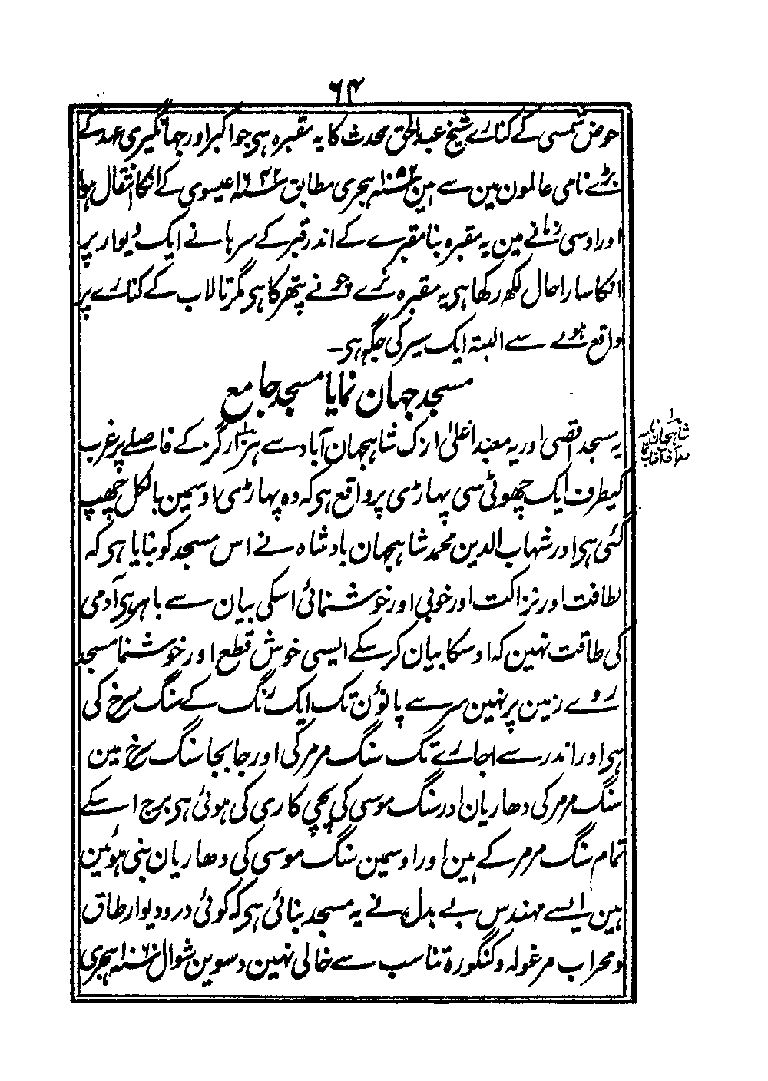 ۶۴
حوض شمسی کے کنارے شیخ عبدالحق محدث کا یہ مقبرہ ہی جو اکبر اور جہانگیری عہد کے
بڑے نامی عالمون مین سے ہین ۱۰۵۲ سنہ ہجری مطابق ۱۶۴۲ سنہ عیسوی کے انکا انتقال ہوا
اور اوسی زمانے مین یہ مقبرہ بنا مقبرے کے اندر قبر کے سرہانے ایک دیوار پر
انکا سارا حال لکھ رکھا ہی یہ مقبرہ نرے چونے پتھر کا ہی مگر تالاب کے کنارے پر
واقع ہونے سے البتہ ایک سیر کی جگہ ہی۔
مسجد جہان نما یا مسجد جامع
یہ مسجد اقصی اور یہ معبد اعلیٰ ارک شاہجہان آباد سے ہزار گز کے فاصلے پر غرب
کیطرف ایک چھوٹی سی پہاڑی پر واقع ہی کہ وہ پہاڑی اوسمین بالکل چھپ
گئی ہی اور شہاب الدین محمد شاہجہان بادشاہ نے اس مسجد کو بنایا ہی کہ
لطافت اور نزاکت اور خوبی اور خوشنمائی اسکی بیان سے باہر ہی آدمی
کی طاقت نہین کہ اوسکا بیان کر سکے ایسی خوش قطع اور خوشنما مسجد
روے زمین پر نہین سر سے پانوٗن تک ایک رنگ کے سنگ سرخ کی
ہی اور اندر سے اجارے تک سنگ مرمر کی اور جا بجا سنگ سرخ مین
سنگ مرمر کی دھاریان اور سنگ موسی کی پچی کاری کی ہوئی ہی برج اسکے
تمام سنگ مرمر کے ہین اور اوسمین سنگ موسی کی دھاریان بنی ہوئین
ہین ایسے مہندس بے بدل نے یہ مسجد بنائی ہی کہ کوئی در و دیوار طاق
و محراب مرغولہ و کنگورہ تناسب سے خالی نہین دسوین شوال ۱۰۶۰ سنہ ہجری